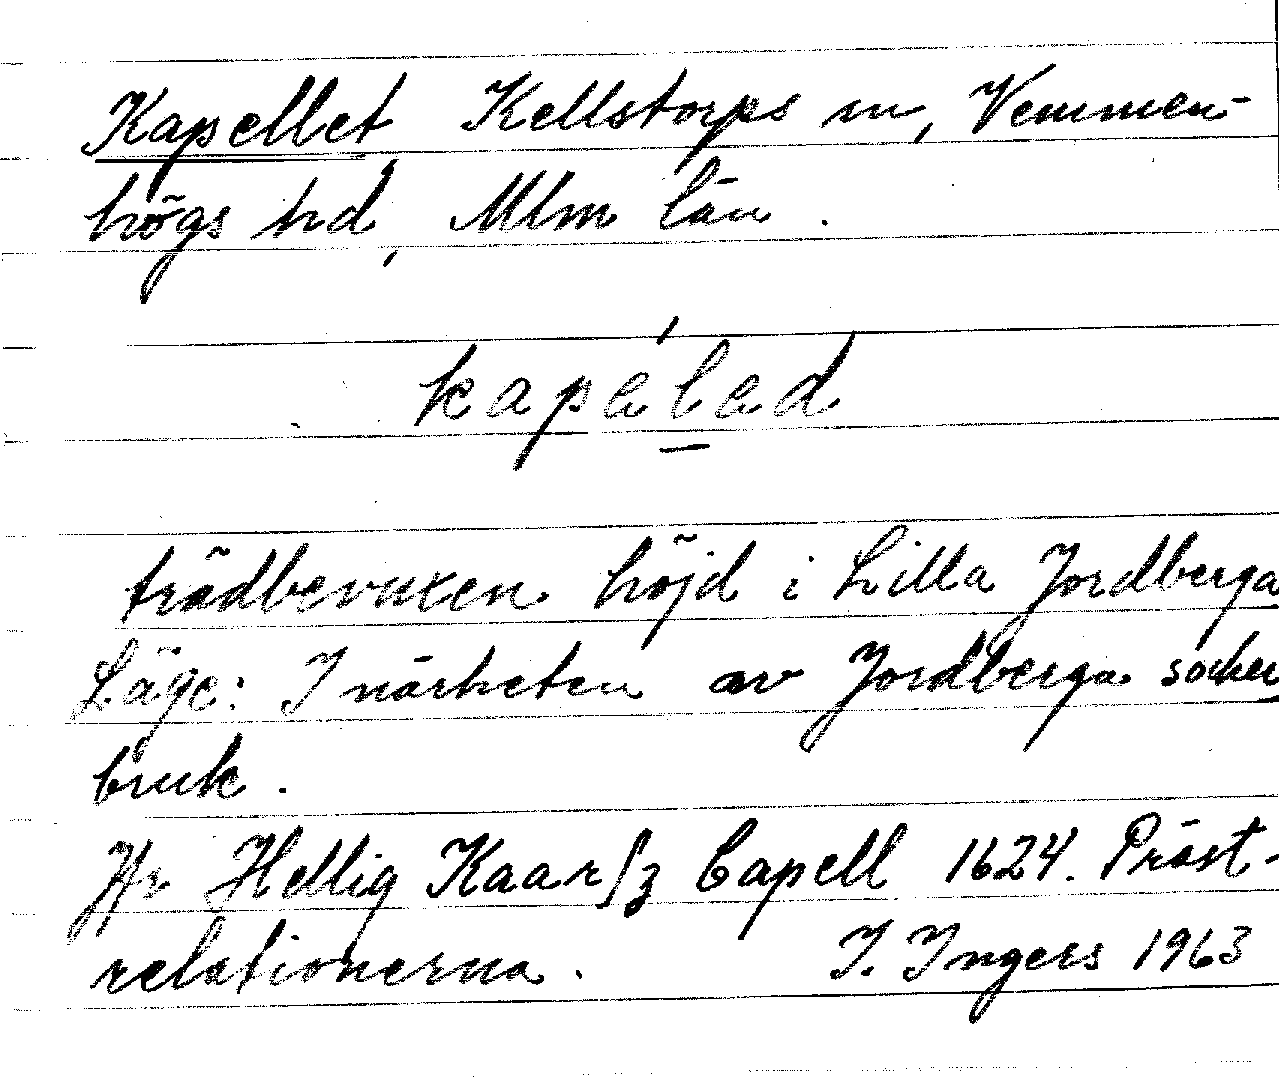 Kapellet Kellstorps sn, Vemmen-
högs hd, Mlm län.
kapälad
trädbevuxen höjd i Lilla Jordberga
Läge: I närheten av Jordberga socker
bruk.
Jfr Hellig Kaarſz Capell 1624. Präst-
relationerna. I. Ingers 1963